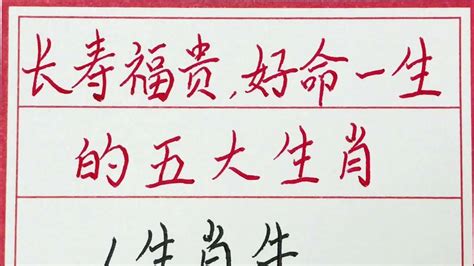 长寿福贵,好命一生
的五大生肖
1生肖牛